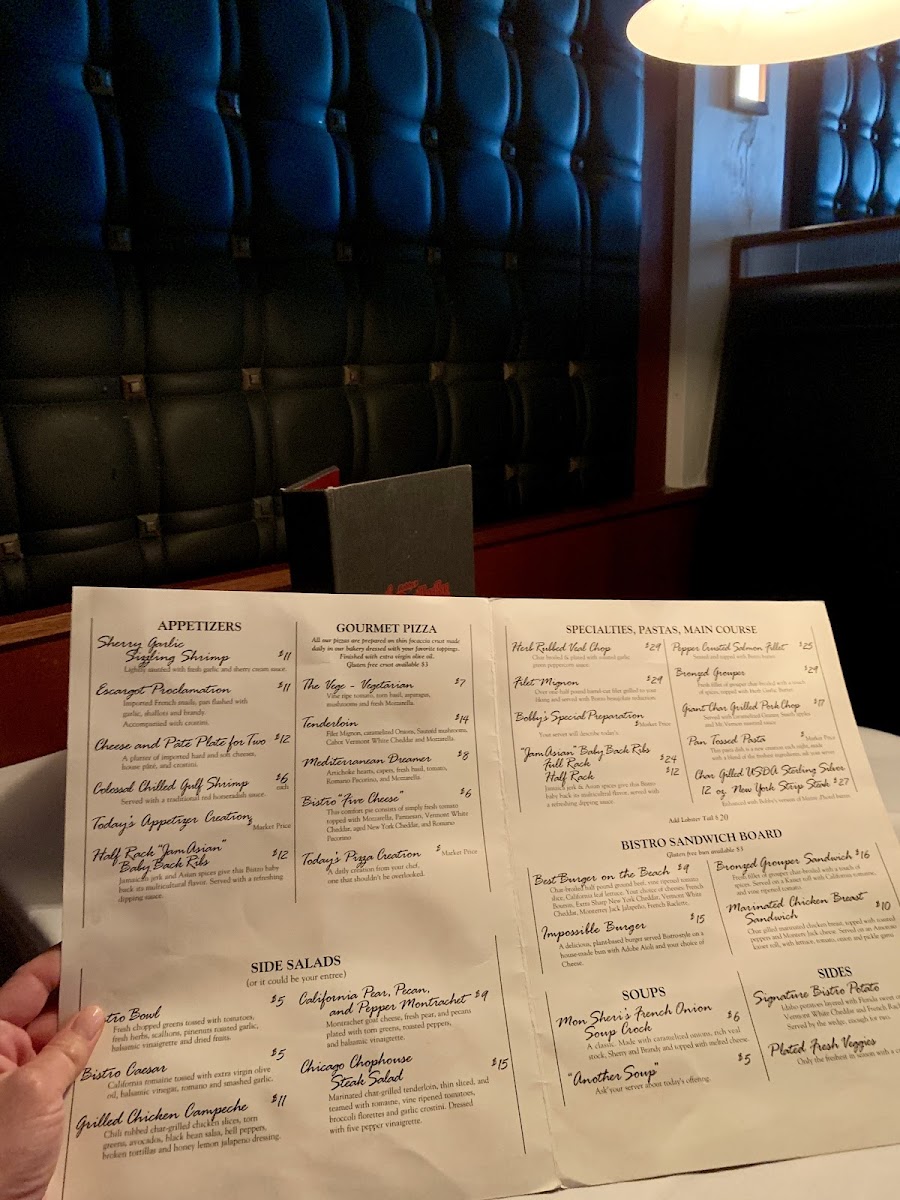 APPETIZERS
Sherry Garlic
Sizzling Shrimp $11
Lightly sautéed with fresh garlic and sherry cream sauce.
Escargot Proclamation $11
Imported French snails, pan flashed with
garlic, shallots and brandy.
Accompanied with crostini.
Cheese and Pâté Plate for Two $12
A platter of imported hard and soft cheeses,
house pâté, and crostini.
Colossal Chilled Gulf Shrimp $6
each
Served with a traditional red horseradish sauce.
Today's Appetizer Creation
$ Market Price
Half Rack "JamAsian"
Baby Back Ribs $12
Jamaican jerk and Asian spices give this Bistro baby
back its multicultural flavor. Served with a refreshing
dipping sauce.
GOURMET PIZZA
All our pizzas are prepared on thin focaccia crust made
daily in our bakery dressed with your favorite toppings.
Finished with extra virgin olive oil.
Gluten free crust available $3
The Vege - Vegetarian $7
Vine ripe tomato, torn basil, asparagus,
mushrooms and fresh Mozzarella.
Tenderloin $14
Filet Mignon, caramelized Onions, Sautéed mushrooms,
Cabot Vermont White Cheddar and Mozzarella.
Mediterranean Dreamer $8
Artichoke hearts, capers, fresh basil, tomato,
Romano Pecorino, and Mozzarella.
Bistro "Five Cheese" $6
This comfort pie consists of simply fresh tomato
topped with Mozzarella, Parmesan, Vermont White
Cheddar, aged New York Cheddar, and Romano
Pecorino
Today's Pizza Creation $ Market Price
A daily creation from your chef,
one that shouldn't be overlooked.
SIDE SALADS
(or it could be your entree)
tro Bowl $5
Fresh chopped greens tossed with tomatoes,
fresh herbs, scallions, pinenuts roasted garlic,
balsamic vinaigrette and dried fruits.
Bistro Caesar $5
California romaine tossed with extra virgin olive
oil, balsamic vinegar, romano and smashed garlic.
Grilled Chicken Campeche $11
Chili rubbed char-grilled chicken slices, torn
greens, avocados, black bean salsa, bell peppers,
broken tortillas and honey lemon jalapeno dressing.
California Pear, Pecan,
and Pepper Montrachet $9
Montrachet goat cheese, fresh pear, and pecans
plated with torn greens, roasted peppers,
and balsamic vinaigrette.
Chicago Chophouse
Steak Salad $15
Marinated char-grilled tenderloin, thin sliced, and
teamed with romaine, vine ripened tomatoes,
broccoli florettes and garlic crostini. Dressed
with five pepper vinaigrette.
SPECIALTIES, PASTAS, MAIN COURSE
Herb Rubbed Veal Chop $29
Char broiled & plated with roasted garlic,
green peppercorn sauce.
Filet Mignon $29
Over one half pound barrel-cut filet grilled to your
liking and served with Bistro bordelaise reduction.
Bobby's Special Preparation
$Market Price
Your server will describe today's.
"JamAsian" Baby Back Ribs
Full Rack $24
Half Rack $12
Jamaica jerk & Asian spices give this Bistro
baby back its multicultural flavor, served with
a refreshing dipping sauce.
Pepper Crusted Salmon Fillet $25
Seared and topped with Bistro butter.
Bronzed Grouper $29
Fresh fillet of grouper char broiled with a touch of
spices, topped with Herb Garlic Butter.
Giant Char Grilled Pork Chop $17
Served with caramelized Granny Smith apples
and Mt. Vernon mustard sauce.
Pan Tossed Pasta $
Market Price
This pasta dish is a new creation each night, made
with a blend of the freshest ingredients, ask your server
Char Grilled USDA Sterling Silver
12 oz. New York Strip Steak $27
Add Lobster Tail $20
BISTRO SANDWICH BOARD
Gluten free bun available $3
Best Burger on the Beach $9
Char-broiled half pound ground beef, vine ripened tomato
slice, California leaf lettuce. Your choice of cheeses: French
Boursin, Extra Sharp New York Cheddar, Vermont White
Cheddar, Monterrey Jack Jalapeño, French Raclette.
Impossible Burger $15
A delicious, plant-based burger served Bistro-style on a
house-made bun with Adobe Aioli and your choice of
Cheese.
Bronzed Grouper Sandwich $16
Fresh fillet of grouper char broiled with a touch of
spices. Served on a Kaiser roll with California romaine,
and vine ripened tomato.
Marinated Chicken Breast
Sandwich $10
Char grilled marinated chicken breast, topped with roasted
peppers and Monterey Jack cheese. Served on an Amoroso
kaiser roll, with lettuce, tomato, onion and pickle garni.
SOUPS
Mon Sheri's French Onion
Soup Crock $6
A classic. Made with caramelized onions, rich veal
stock, Sherry and Brandy and topped with melted cheese.
"Another Soup" $5
Ask your server about today's offering.
SIDES
Signature Bistro Potato
Idaho potatoes layered with
Vermont White Cheddar and French
Served by the wedge, enough for two.
Plated Fresh Veggies
Only the freshest in season with a